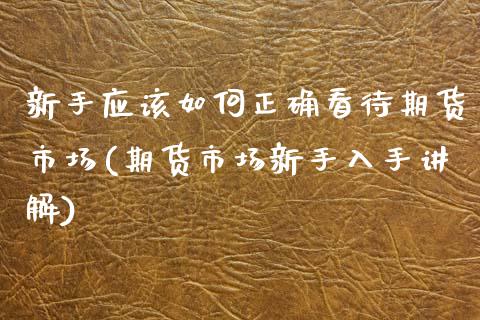 新手应该如何正确看待期货
市场(期货市场新手入手讲
解)